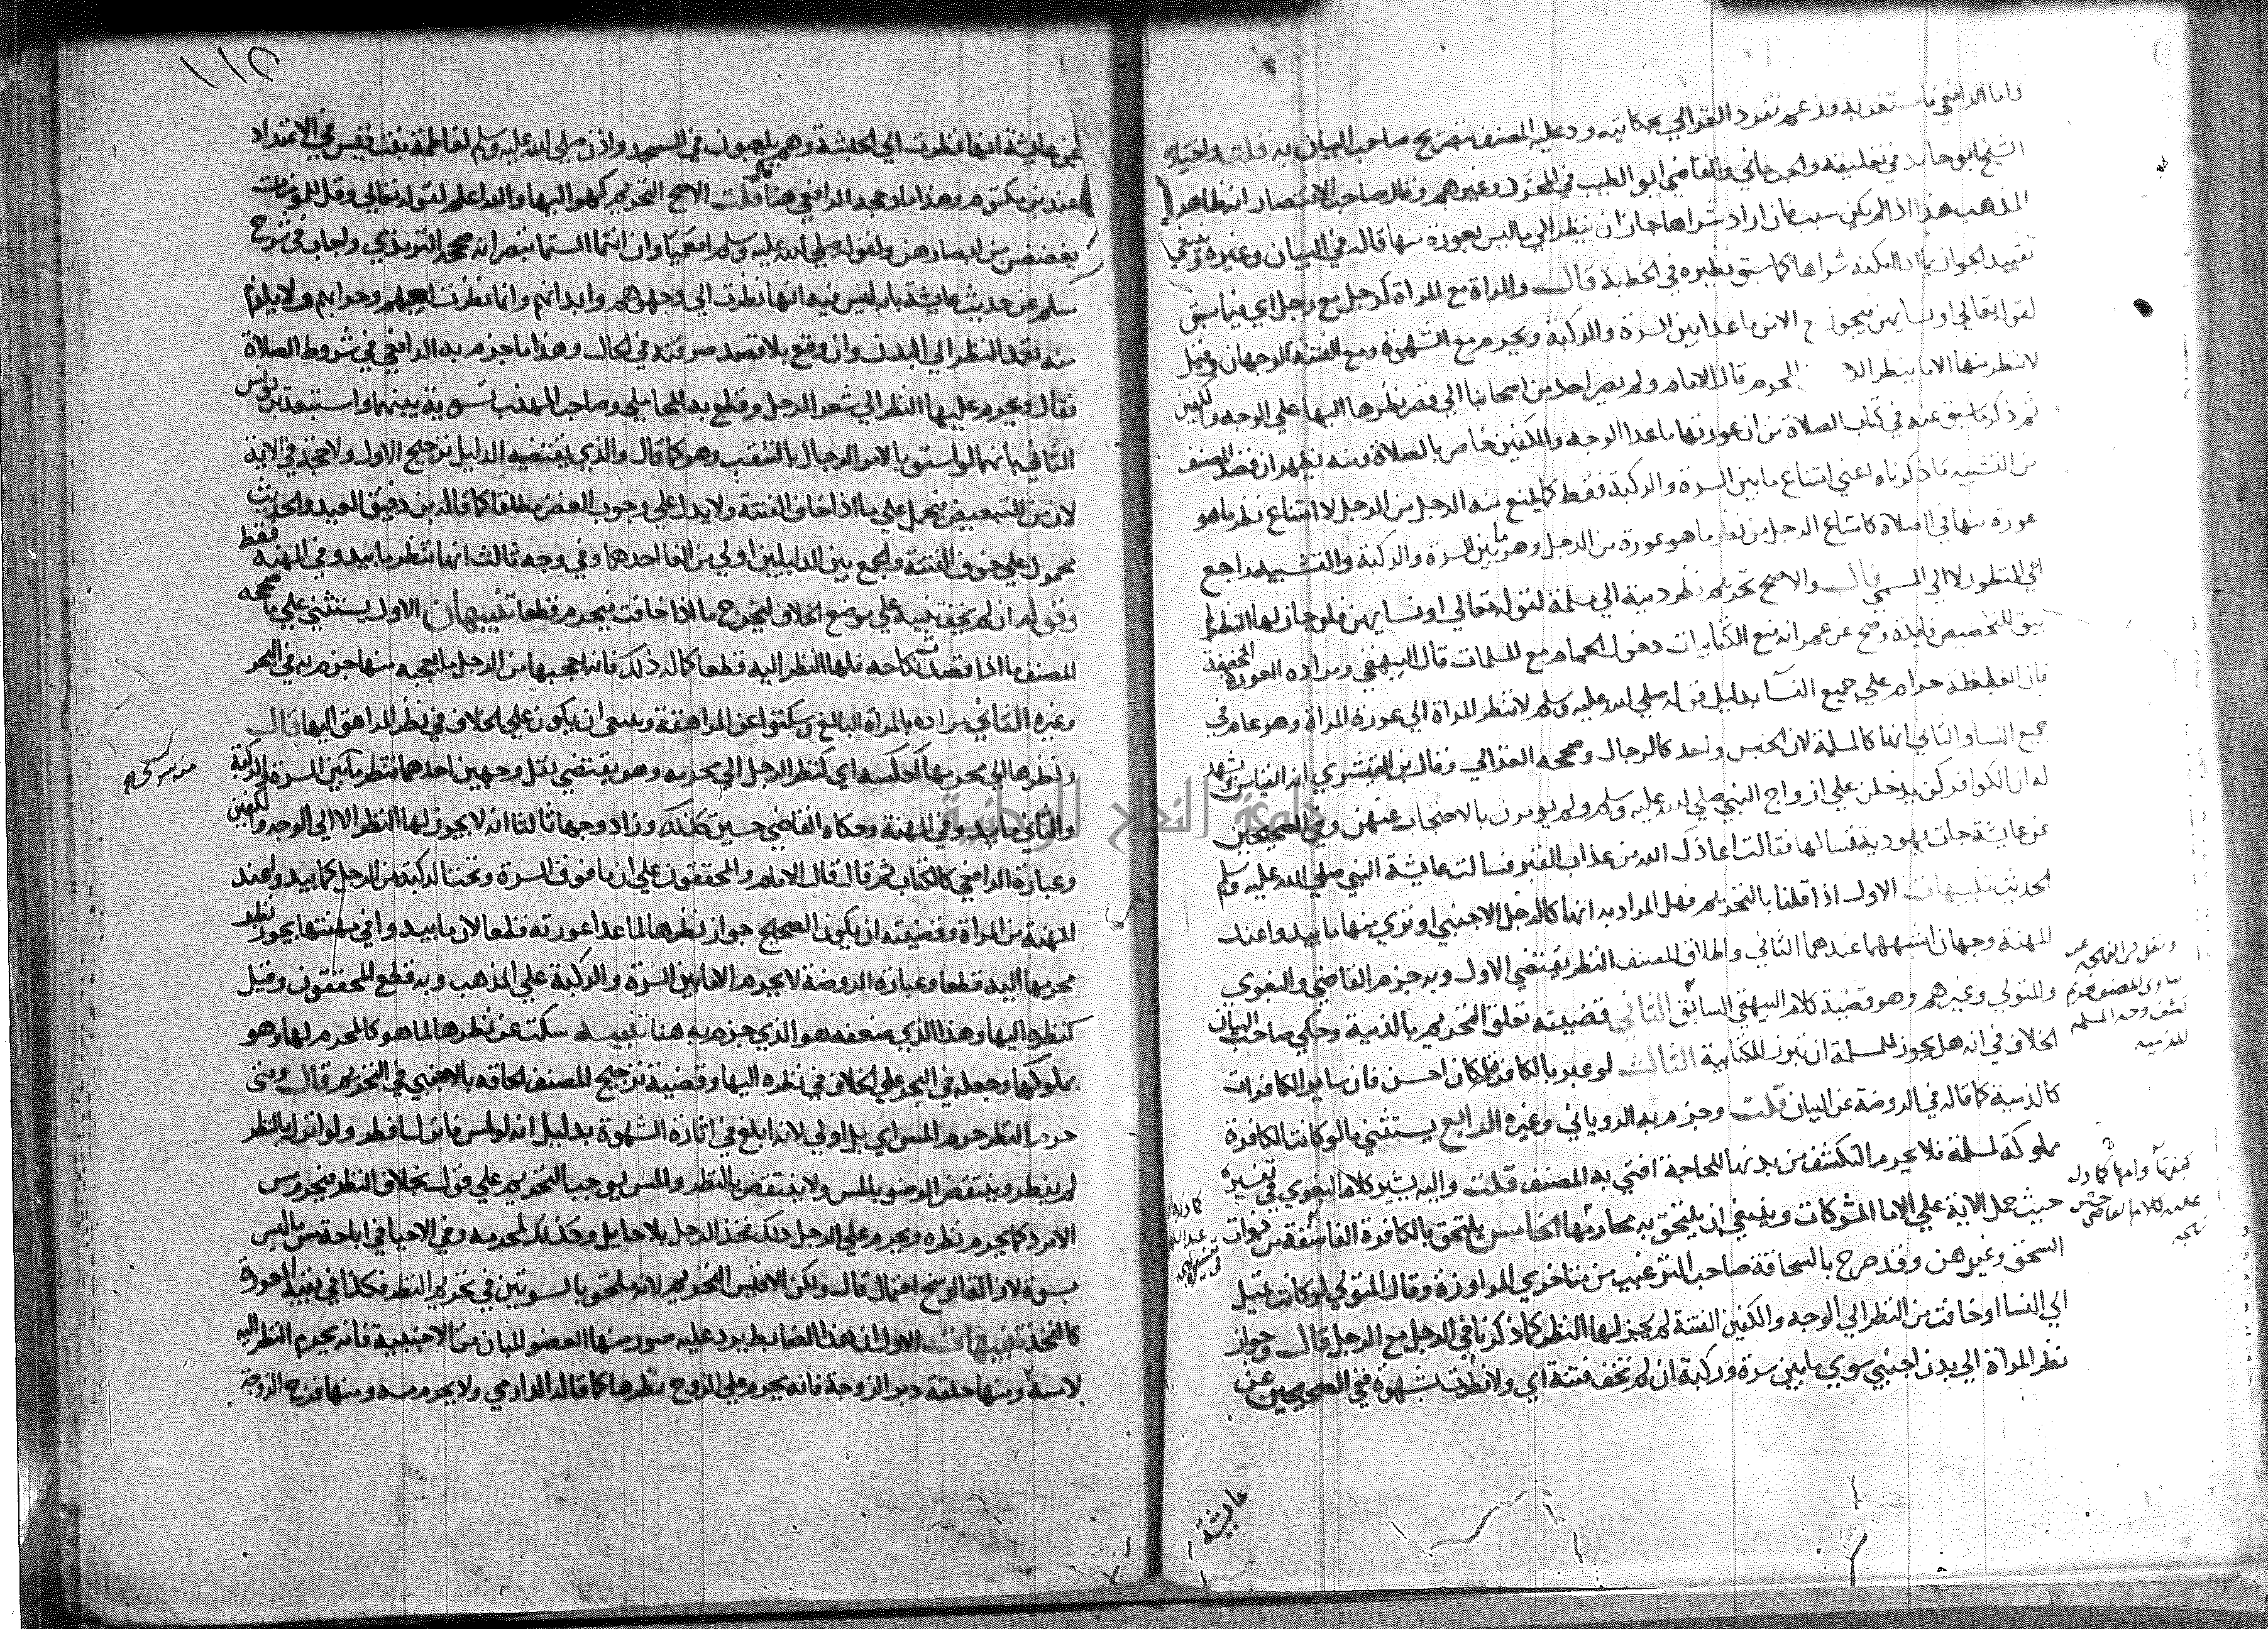 واما الرافعي فاستغربه وزعم تفرد الغزالي بحكايته ورد عليه المصنف بتصريح صاحب البيان به قلت واختاره
الشيخ ابو حامد في تعليقه والجرجاني والقاضي ابو الطيب في المجرد وغيرهم وقال صاحب الانتصار انه ظاهر
المذهب هذا اذا لم يكن سبب فان اراد شراها جاز ان ينظر الي ما ليس بعورة منها قاله في البيان وغيره وينبغي
تقييد الجواز بما اذا امكنه شراها كما سبق نظيره في الخطبة قال والمراة مع المراة كرجل مع رجل اي فيما سبق
لقوله تعالي او نسايهن فيجوز الامن ما عدا بين السرة والركبة ويحرم مع الشهوة ومع الفتنة الوجهان وقيل
لا تنظر منها الا ما ينظر المحرم قال الامام ولم يصر احد من اصحابنا الي قصر نظرها اليها علي الوجه والكفين
ثم ذكر ما سبق عنه في كتاب الصلاة من ان عورتها ما عدا الوجه والكفين خاص بالصلاة ومنه يظهر ان قصد المصنف
من التشبيه ما ذكرناه اعني امتناع ما بين السرة والركبة فقط كما يمنع منه الرجل من الرجل لا امتناع نظر ما هو
عورة منها في الصلاة كامتناع الرجل من نظر ما هو عورة من الرجل وهو ما بين السرة والركبة والتشبيه راجع
الي المنظور لا الي المسمي قال والاصح تحريم نظر ذمية الي مسلمة لقوله تعالي او نسايهن فلو جاز لها النظر لم
يبق للتخصيص فايدة وصح عن عمر انه منع الكتابيات دخول الحمام مع المسلمات قال البيهقي ومراده العورة المخففة
فان الغليظة حرام علي جميع النسا بدليل قوله صلي الله عليه وسلم لا تنظر المراة الي عورة المراة وهو عام في
جميع النسا والثاني انها كالمسلمة لان الجنس واحد كالرجال وصححه الغزالي وقال بن القشيري انه القياس ويشهد
له ان الكوافر كن يدخلن علي ازواج النبي صلي الله عليه وسلم ولم يومرن بالاحتجاب عنهن وفي الصحيحين
عن عايشة جات يهودية تسالها فقالت اعاذك الله من عذاب القبر فسالت عايشة النبي صلي الله عليه وسلم
الحديث تنبيهات الاول اذا قلنا بالتحريم فهل المراد به انها كالرجل الاجنبي او تري منها ما يبدوا عند
المهنة وجهان اشبههما عندهما الثاني واطلاق المصنف النظر يقتضي الاول وبه جزم القاضي والبغوي
والمتولي وغيرهم وهو قضية كلام البيهقي السابق الثاني قضيته تعلق التحريم بالذمية وحكي صاحب البيان
الخلاف في انه هل يجوز للمسلمة ان تبرز للكتابية الثالث لو عبر بالكافرة لكان احسن فان ساير الكافرات
كالذمية كما قاله في الروضة عن البيان قلت وجزم به الروياني وغيره الرابع يستثني ما لو كانت الكافرة
مملوكة لمسلمة فلا يحرم التكشف من بدنها للحاجة افتي به المصنف قلت واليه يشير كلام البغوي في تفسيره
حيث حمل الاية علي الاما المشركات وينبغي ان يلتحق به محارمها الخامس يلتحق بالكافرة الفاسقة من ذوات
السحق وغيرهن وقد صرح بالسحاقة صاحب الترغيب من متاخري المراوزة وقال المتولي لو كانت تميل
الي النسا او خافت من النظر الي الوجه والكفين الفتنة لم يجز لها النظر كما ذكرنا في الرجل مع الرجل قال وجواز
نظر المراة الي بدن اجنبي سوي ما بين سرة وركبة ان لم تخف فتنة اي ولا نظرت بشهوة ففي الصحيحين عن
عايشة
١١٥
عن عايشة انها نظرت الي الحبشة وهم يلعبون في المسجد واذن صلي الله عليه وسلم لفاطمة بنت قيس في الاعتداد
عند بن مكتوم وهذا ما رجحه الرافعي هنا قلت الاصح التحريم كهو اليها والله اعلم لقوله تعالي وقل للمومنات
يغضضن من ابصارهن ولقوله صلي الله عليه وسلم افعمياوان انتما الستما تبصرانه صححه الترمذي واجاب في شرح
مسلم عن حديث عايشة بانه ليس فيه انها نظرت الي وجوههم وابدانهم وانما نظرت لعبهم وحرابهم ولا يلزم
منه تعمد النظر الي البدن وان وقع بلا قصد صرفته في الحال وهذا ما جزم به الرافعي في شروط الصلاة
فقال ويحرم عليها النظر الي شعر الرجل وقطع به المحاملي وصاحب المهذب تسوية بينهما واستبعد بن يونس
الثاني بانهما لو استويا لامر الرجال بالتنقب وهو كما قال والذي يقتضيه الدليل ترجيح الاول ولا حجة في الاية
لان من للتبعيض فيحمل علي ما اذا خاف الفتنة ولا يدل علي وجوب الغض مطلقا كما قاله بن دقيق العيد والحديث
محمول علي خوف الفتنة والجمع بين الدليلين اولي من الغا احدهما وفي وجه ثالث انها تنظر ما يبدو في المهنة فقط
وقوله ان لم تخف تنبيه علي موضع الخلاف ليخرج ما اذا خافت فيحرم قطعا تنبيهان الاول يستثني علي ما صححه
المصنف ما اذا قصدت نكاحه فلها النظر اليه قطعا كما له ذلك فانه يعجبها من الرجل ما يعجبه منها جزم به في البحر
وغيره الثاني مراده بالمراة البالغ وسكتوا عن المراهقة وينبغي ان يكون علي الخلاف في نظر المراهق اليها قال
ونظرها الي محرمها كعكسه اي كنظر الرجل الي محرمه وهو يقتضي نقل وجهين احدهما تنظر ما بين السرة والركبة
والثاني ما يبدو في المهنة وحكاه القاضي حسين كذلك وزاد وجها ثالثا انه لا يجوز لها النظر الا الي الوجه والكفين
وعبارة الرافعي كالكتاب ثم قال قال الامام والمحققون علي ان ما فوق السرة وتحت الركبة من الرجل كما يبدو عند
المهنة من المراة وقضيته ان يكون الصحيح جواز نظرها لما عدا عورته قطعا لان ما يبدوا في مهنتها يجوز نظر
محرمها اليه قطعا وعبارة الروضة لا يحرم الا ما بين السرة والركبة علي المذهب وبه قطع المحققون وقيل
كنظره اليها وهذا الذي ضعفه هو الذي جزم به هنا تنبيه سكت عن نظرها لما هو كالمحرم لها وهو
مملوكها وجعله في البحر علي الخلاف في نظره اليها وقضية ترجيح المصنف الحاقه بالاجنبي في التحريم قال ومتي
حرم النظر حرم المس اي بل اولي لانه ابلغ في اثارة الشهوة بدليل انه لو لمس فانزل افطر ولو انزل بالنظر
لم يفطر وينتقض الوضو بالمس ولا ينتقض بالنظر والمس يوجب التحريم علي قول بخلاف النظر فيحرم مس
الامرد كما يحرم نظره ويحرم علي الرجل دلك فخذ الرجل بلا حايل وكذلك لمحرمه وفي الاحيا في اباحة مس ما ليس
بسوة لازالة الوسخ احتمال قال ولكن الاقيس التحريم لانه ملتحق بالسوتين في تحريم النظر فكذا في بقية العورة
كالفخذ تنبيهات الاول ان هذا الضابط يرد عليه صور منها العضو المبان من الاجنبية فانه يحرم النظر اليه
لا مسه ومنها حلقة دبر الزوجة فانه يحرم علي الزوج نظرها كما قاله الدارمي ولا يحرم مسه ومنها فرج الزوجة